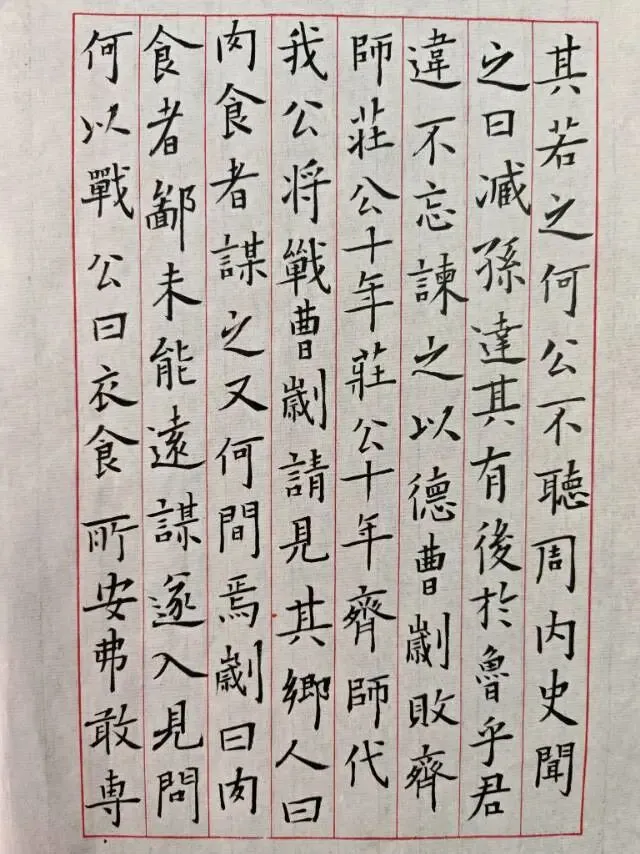 其若之何公不聽周内史聞
之曰減孫達其有後於魯乎君
違不忘諫之以德曹劌敗齊
師莊公十年莊公十年齊師代
我公将戰曹劌請見其鄉人曰
肉食者謀之又何間焉劌曰肉
食者鄙未能遠謀遂入見問
何以戰公曰衣食所安弗敢専